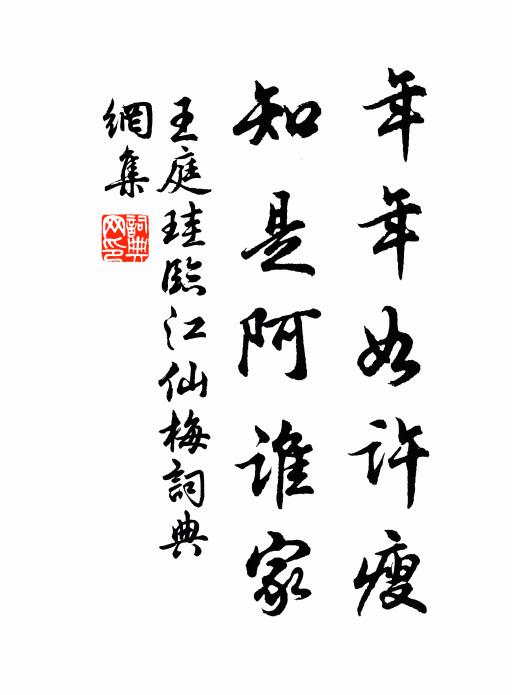 年年如許瘦
知是阿誰家
王庭珪臨江仙梅詞典
網集
詞典
网印